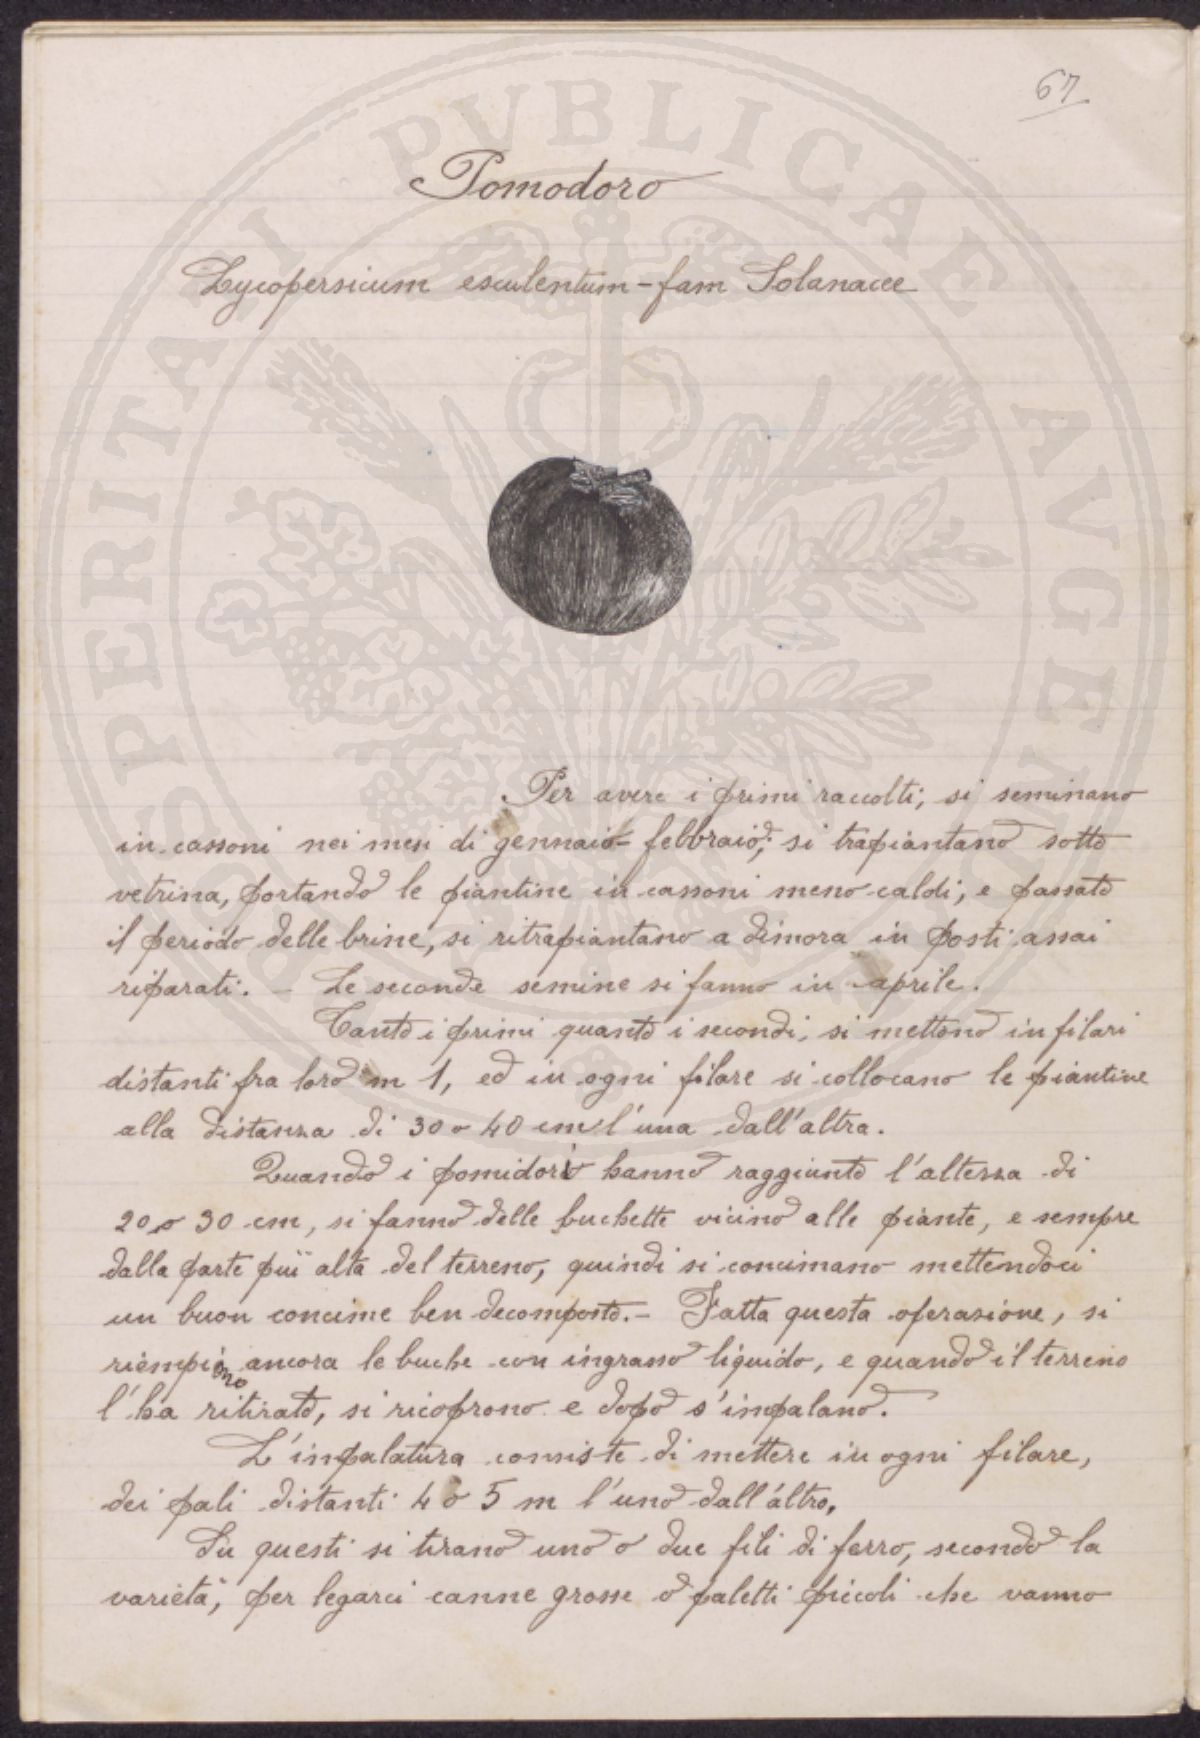 67
Pomodoro
Lycopersicum esculentum - fam Solanacee
Per avere i primi raccolti, si seminano
in cassoni nei mesi di gennaio - febbraio; si trapiantano sotto
vetrina, portando le piantine in cassoni meno caldi; e passato
il periodo delle brine, si ritrapiantano a dimora in posti assai
riparati. - Le seconde semine si fanno in aprile.
Tanto i primi quanto i secondi, si mettono in filari
distanti fra loro m 1, ed in ogni filare si collocano le piantine
alla distanza di 30 o 40 cm l'una dall'altra.
Quando i pomidori hanno raggiunto l'altezza di
20 o 30 cm, si fanno delle buchette vicino alle piante, e sempre
dalla parte più alta del terreno, quindi si concimano mettendoci
un buon concime ben decomposto. - Fatta questa operazione, si
riempiono ancora le buche con ingrasso liquido, e quando il terreno
l'ha ritirato, si ricoprono e dopo s'inpalano.
L'inpalatura consiste di mettere in ogni filare,
dei pali distanti 4 o 5 m l'uno dall'altro.
Su questi si tirano uno o due fili di ferro, secondo la
varietà, per legarci canne grosse o paletti piccoli che vanno
PUBLICAE AUGEN
SPERITATI